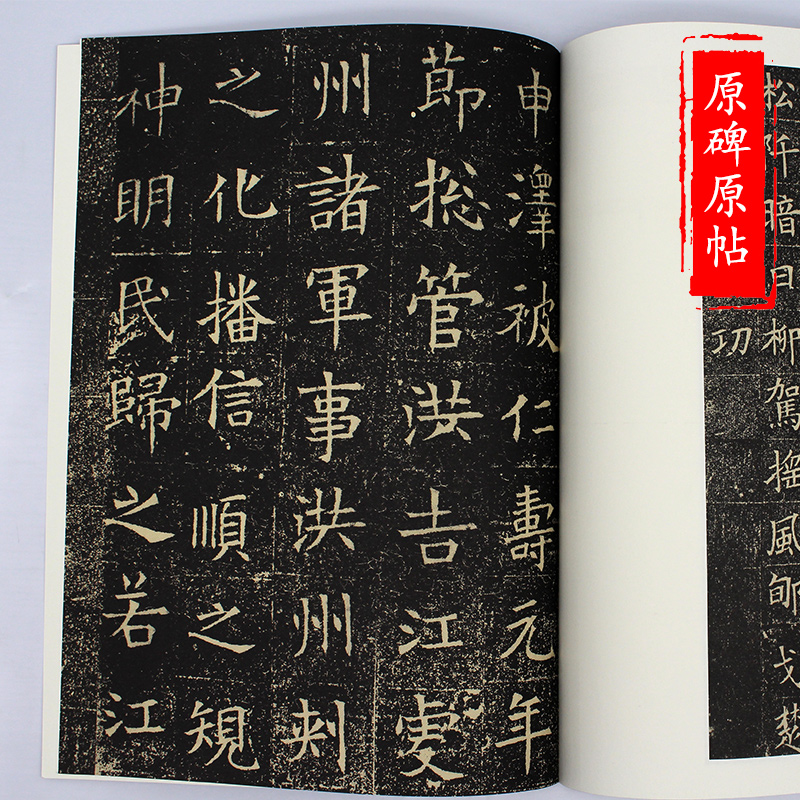 原碑原帖
松阡暗日柳駕摇風郇戈楚
㓛
申澤被仁壽元年
莭揔管洪吉江虔
州諸軍事洪州刾
之化播信順之規
神明民歸之若江